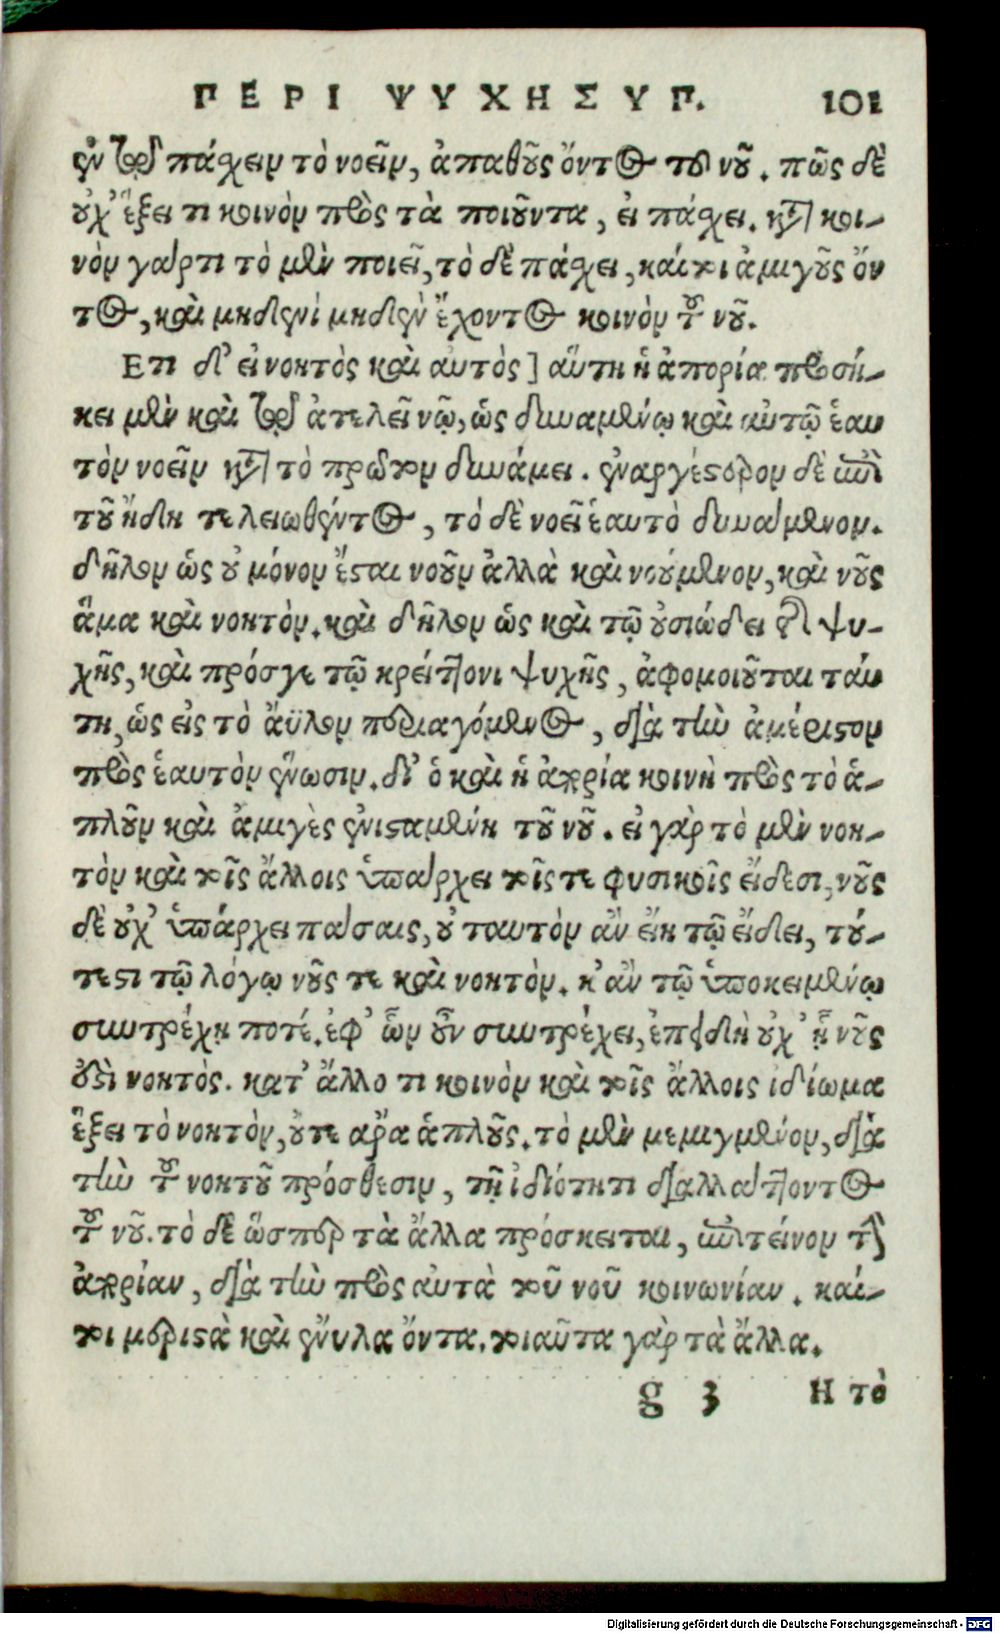 ΠΕΡΙ ΨΥΧΗΣ ΥΠ. 101
ἐν τῷ πάχειν τὸ νοεῖν, ἀπαθοῦς ὄντος τοῦ νοῦ. πῶς δὲ
οὐχ' ἕξει τι κοινὸν πρὸς τὰ ποιοῦντα, εἰ πάχει. κατὰ κοι-
νὸν γάρ τι τὸ μὲν ποιεῖ, τὸ δὲ πάχει, καίτοι ἀμιγοῦς ὄν
τος, καὶ μηδενὶ μηδὲν ἔχοντος κοινὸν τοῦ νοῦ.
Ετι δ' εἰ νοητὸς καὶ αὐτὸς] αὕτη ἡ ἀπορία προσή-
κει μὲν καὶ τῷ ἀτελεῖ νῷ, ὡς δυναμένῳ καὶ αὐτῷ ἑαυ
τὸν νοεῖν κατὰ τὸ πρῶτον δυνάμει. ἐναργέστερον δὲ ἐπὶ
τοῦ ἤδη τελειωθέντος, τὸ δὲ νοεῖ ἑαυτὸ δυνάμενον.
δῆλον ὡς οὐ μόνον ἔσται νοοῦν ἀλλὰ καὶ νούμενον, καὶ νοῦς
ἅμα καὶ νοητὸν. καὶ δῆλον ὡς καὶ τῷ οὐσιώδει τῆς ψυ-
χῆς, καὶ πρόσγε τῷ κρείττονι ψυχῆς, ἀφομοιοῦται ταύ
τη, ὡς εἰς τὸ ἄϋλον περιαγόμενος, διὰ τὴν ἀμέριστον
πρὸς ἑαυτὸν ἕνωσιν. δι' ὃ καὶ ἡ ἀπορία κοινὴ πρὸς τὸ ἁ-
πλοῦν καὶ ἀμιγὲς ἐνισταμένη τοῦ νοῦ. εἰ γὰρ τὸ μὲν νοη-
τὸν καὶ τοῖς ἄλλοις ὑπάρχει τοῖς τε φυσικοῖς εἴδεσι, νοῦς
δὲ οὐχ' ὑπάρχει πάσαις, οὐ ταυτὸν ἂν εἴη τῷ εἴδει, τού-
τεστι τῷ λόγῳ νοῦς τε καὶ νοητὸν. κ' ἂν τῷ ὑποκειμένῳ
συντρέχῃ ποτέ. ἐφ' ὧν οὖν συντρέχει, ἐπειδὴ οὐχ' ᾗ νοῦς
οὐδὲ νοητὸς. κατ' ἄλλο τι κοινὸν καὶ τοῖς ἄλλοις ἰδίωμα
ἕξει τὸ νοητὸν, οὔτε ἄρα ἁπλοῦς. τὸ μὲν μεμιγμένον, διὰ
τὴν τοῦ νοητοῦ πρόσθεσιν, τῇ ἰδιότητι διαλλάττοντος
τοῦ νοῦ. τὸ δὲ ὥσπερ τὰ ἄλλα πρόσκειται, ἐπιτείνον τὴν
ἀπορίαν, διὰ τὴν πρὸς αὐτὰ τοῦ νοῦ κοινωνίαν. καί-
τοι μεριστὰ καὶ ἔνυλα ὄντα. τοιαῦτα γὰρ τὰ ἄλλα.
g 3 Η τὸ
Digitalisierung gefördert durch die Deutsche Forschungsgemeinschaft - DFG